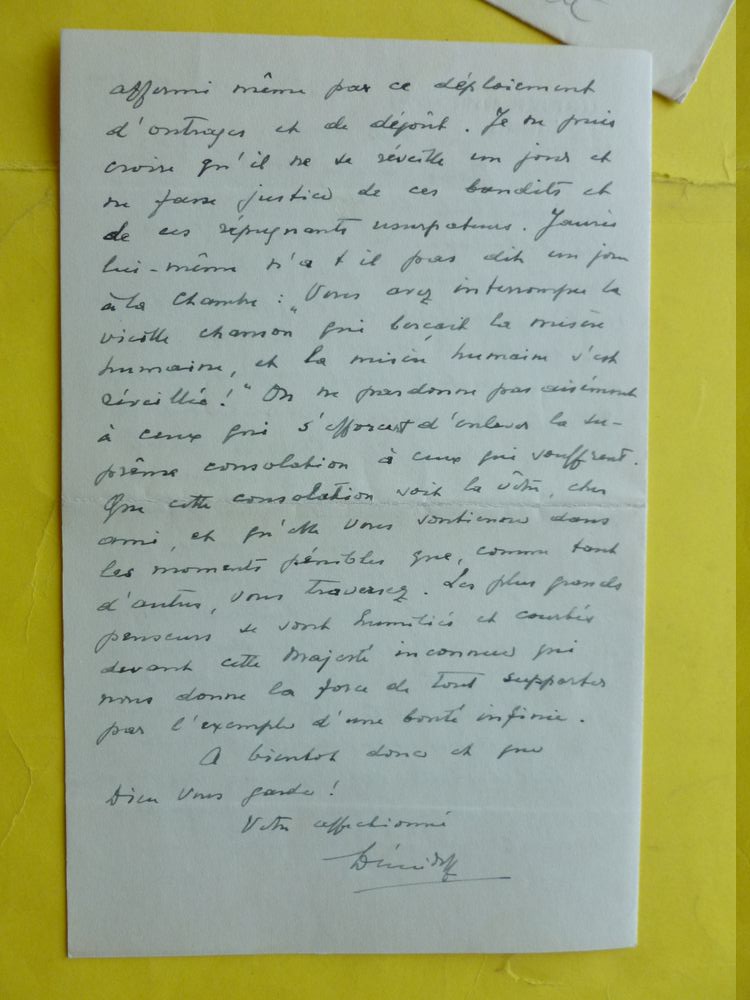 affermi même par ce déploiement
d'outrages et de dégoût. Je ne puis
croire qu'il ne se réveille un jour et
ne fasse justice de ces bandits et
de ces répugnants usurpateurs. Jaurès
lui-même n'a t il pas dit un jour
à la Chambre : "Vous avez interrompu la
vieille chanson qui berçait la misère
humaine, et la misère humaine s'est
réveillée!" On ne pardonne pas aisément
à ceux qui s'efforcent d'enlever la su-
prême consolation à ceux qui souffrent.
Que cette consolation soit la vôtre, cher
ami, et qu'elle vous soutienne dans
les moments pénibles que, comme tant
d'autres, vous traversez. Les plus grands
penseurs se sont humiliés et courbés
devant cette Majesté inconnue qui
nous donne la force de tout supporter
par l'exemple d'une bonté infinie.
A bientot donc et que
Dieu vous garde!
Votre affectionné